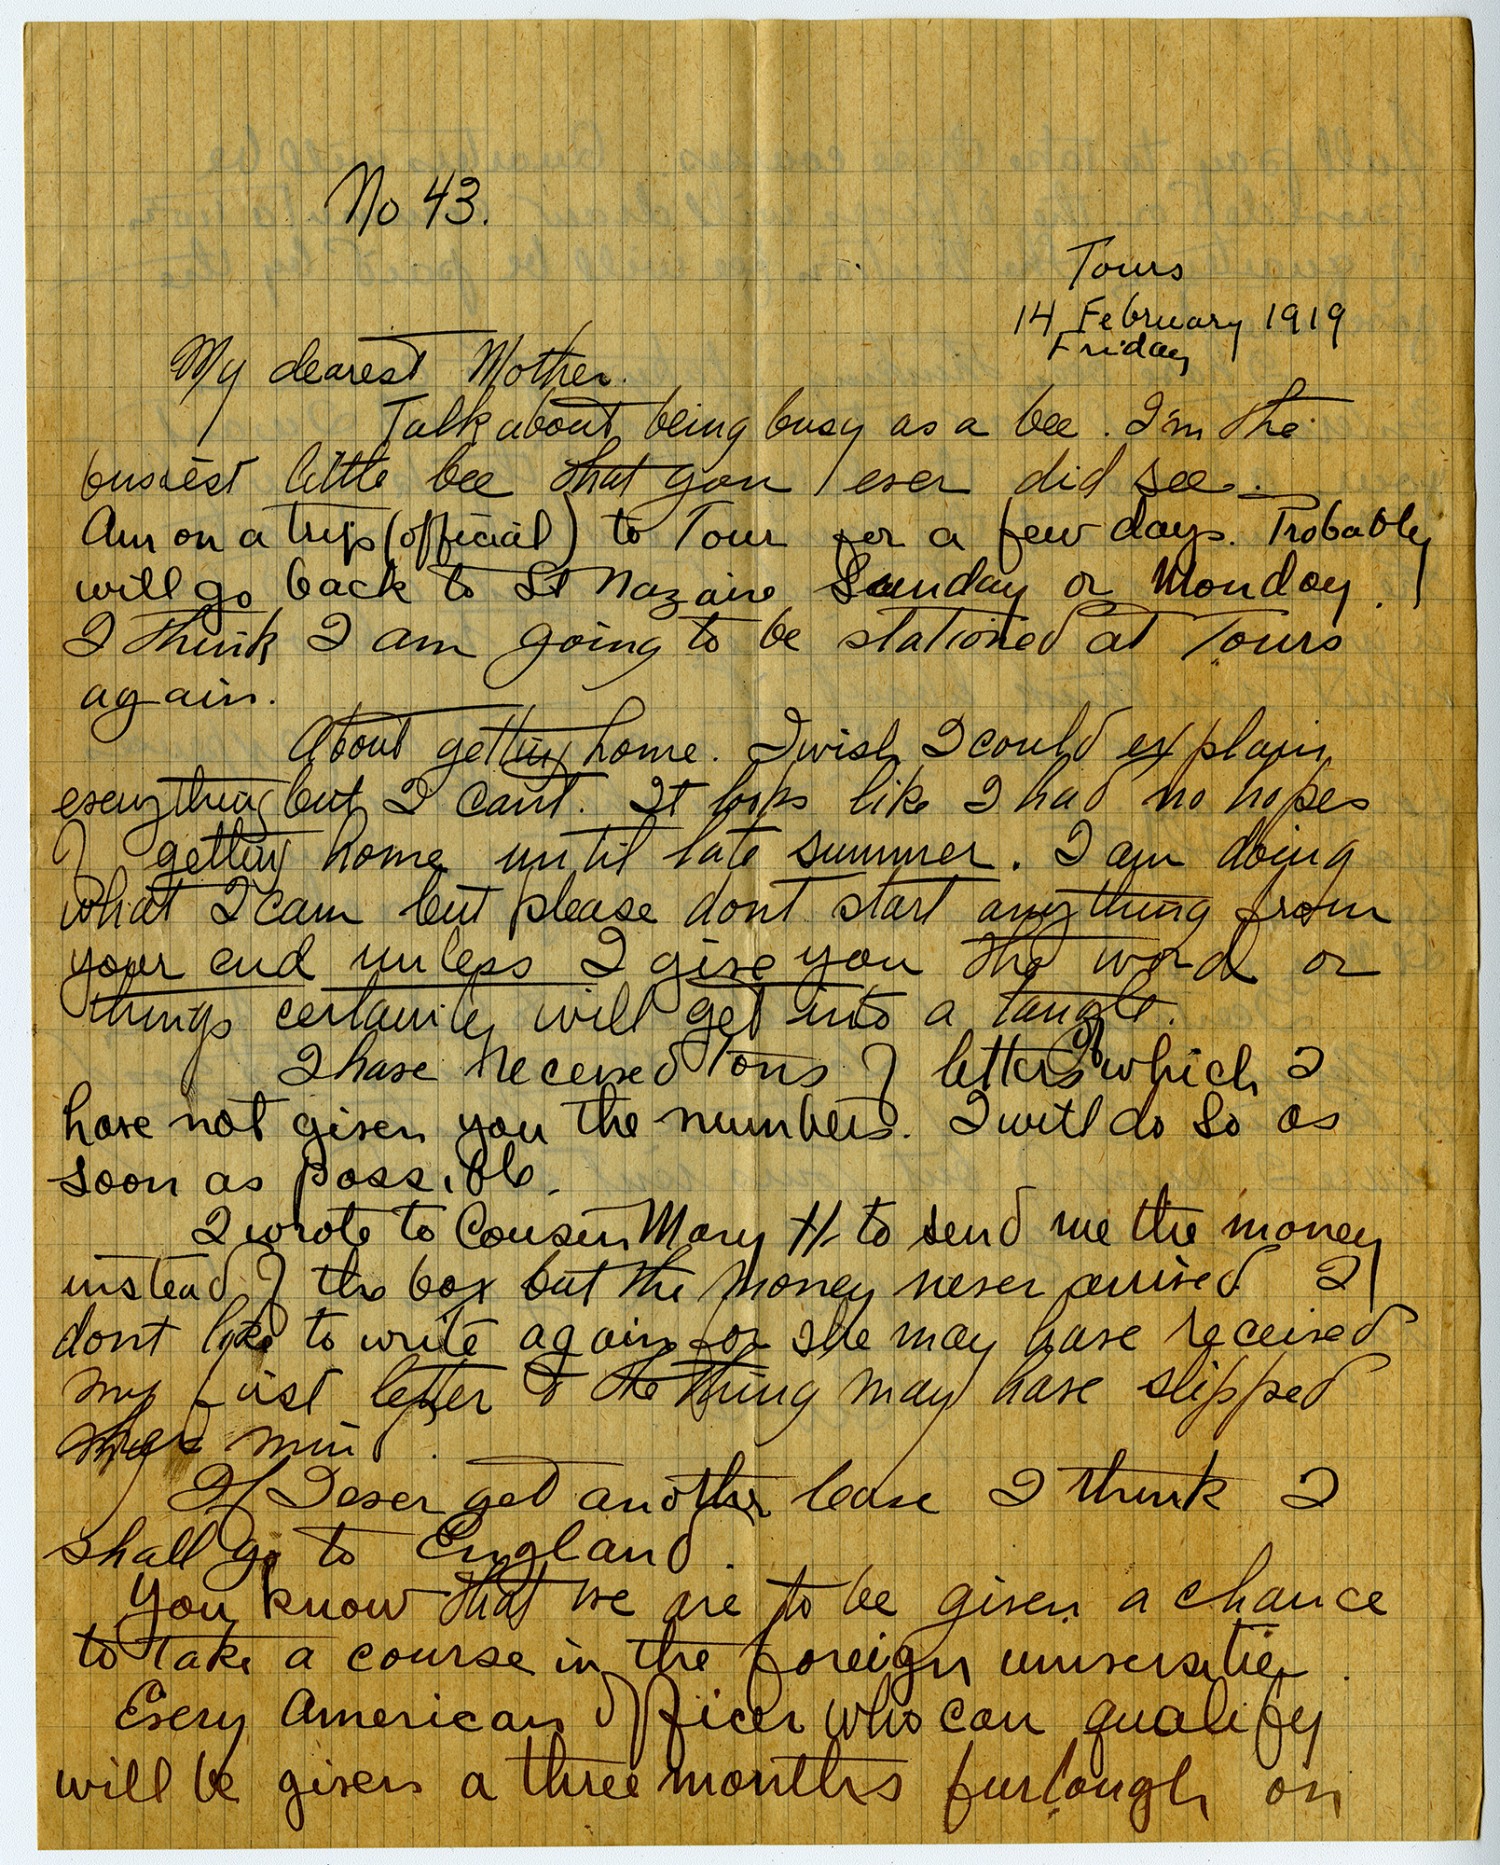 No 43.
Tours
14 February 1919
Friday
My dearest Mother.
Talk about being busy as a bee. I'm the
busiest little bee that you ever did see.
Am on a trip (official) to Tour for a few days. Probably
will go back to St Nazaire Sunday or Monday.
I think I am going to be stationed at Tours
again.
About getting home. I wish I could explain
everything but I can't. It looks like I had no hopes
of getting home until late summer. I am doing
what I can but please dont start anything from
your end unless I give you the word or
things certainly will get into a tangle.
I have received tons of letters of which I
have not given you the numbers. I will do so as
soon as possible.
I wrote to Cousin Mary H. to send me the money
instead of the box but the money never arrived I
dont like to write again for she may have received
my first letter & the thing may have slipped
her mind.
If I ever get another leave I think I
shall go to England.
You know that we are to be given a chance
to take a course in the foreign universities.
Every American officer who can qualify
will be given a three months furlough on